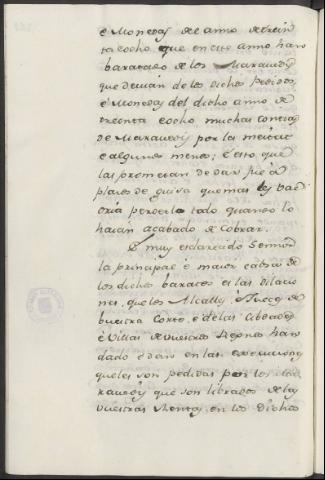 é Monedas del anno de trein
ta é ocho que en este anno han
baratado de los Maravedis
que devian de los dichos Pedidos
é Monedas del dicho anno de
treenta é ocho muchas contias
de Maravedis por la meitat
é algunos menos; é esto que
las prometian de dar fie á
plazos de guisa que mas les val
dria perderlo todo quando lo
haian acabado de cobrar.
É muy esclarecido Sennor
la principal é maior cabsa de
los dichos baratos es las dilacio
nes que los Alcalles, é Jueces de
vuestra Corte, é de las Cibdades
é Villas de vuestros Regnos han
dado é dan en las execuciones
que les son pedidas por los Ma
ravedis que son librados de las
vuestras Rentas, en los dichos